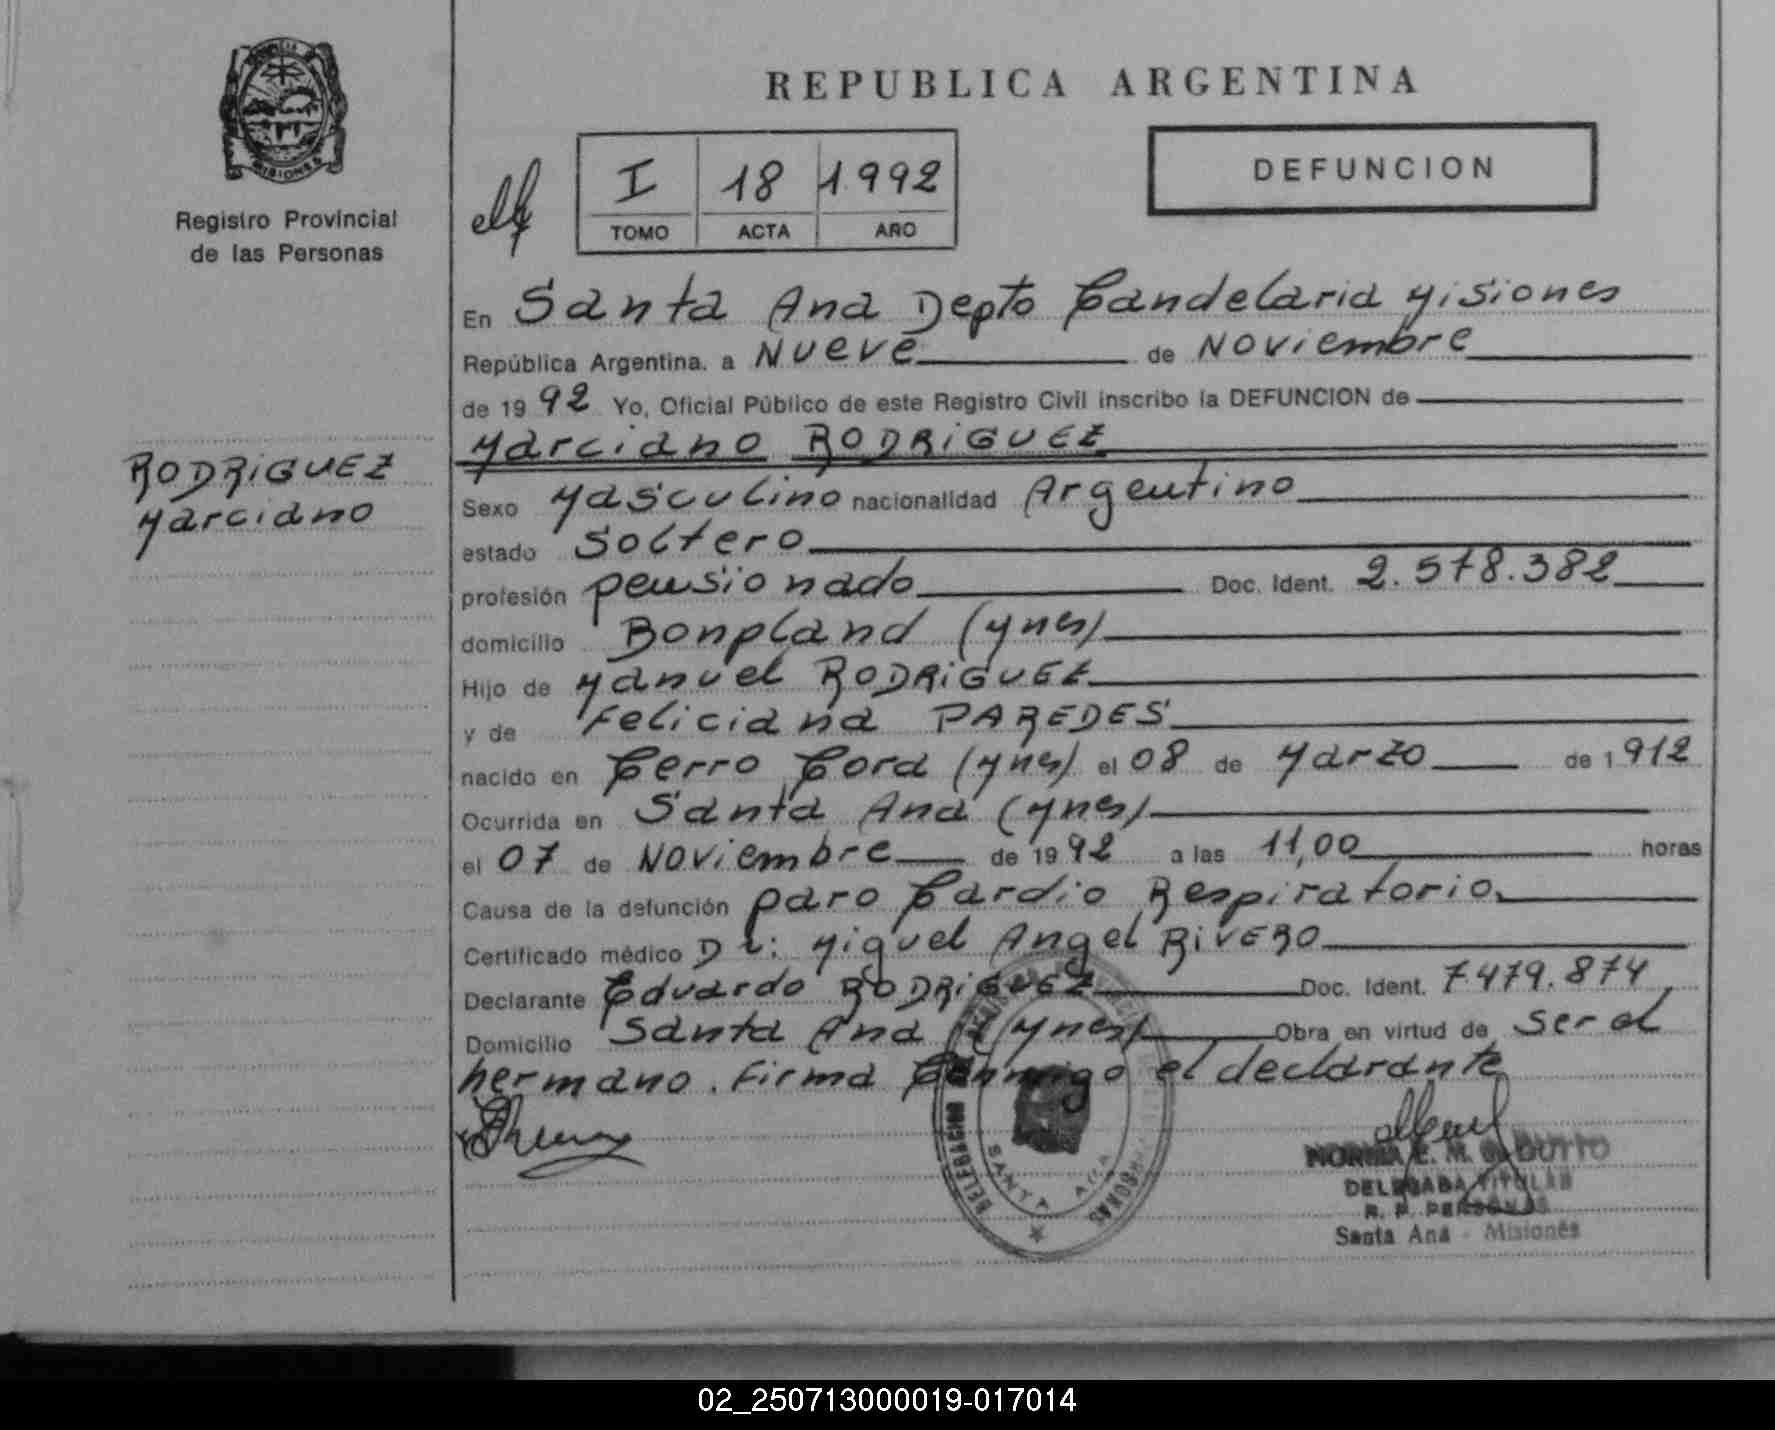 REPUBLICA ARGENTINA
MISIONES
Registro Provincial
de las Personas
I 18 1992
TOMO ACTA AÑO
DEFUNCION
En Santa Ana Depto Candelaria Misiones
República Argentina. a Nueve de Noviembre
de 19 92 Yo, Oficial Público de este Registro Civil inscribo la DEFUNCION de
Marciano RODRIGUEZ
RODRIGUEZ
Marciano
Sexo Masculino nacionalidad Argentino
estado Soltero
profesión pensionado Doc. Ident. 2.578.382
domicilio Bonpland (Mnes)
Hijo de Manuel RODRIGUEZ
y de Feliciana PAREDES
nacido en Cerro Cora (Mnes) el 08 de Marzo de 1 912
Ocurrida en Santa Ana (Mnes)
el 07 de Noviembre de 19 92 a las 11,00 horas
Causa de la defunción paro Cardio Respiratorio.
Certificado médico Dr: Miguel Angel RIVERO
Declarante Eduardo RODRIGUEZ Doc. Ident. 7.479.874
Domicilio Santa Ana (Mnes) Obra en virtud de Ser el
hermano. Firma Conmigo el declarante
DELEGACION
PERSONAS
SANTA ANA
NORMA E. M. DUTTO
DELEGADA TITULAR
R. P. PERSONAS
Santa Ana - Misiones
02_250713000019-017014